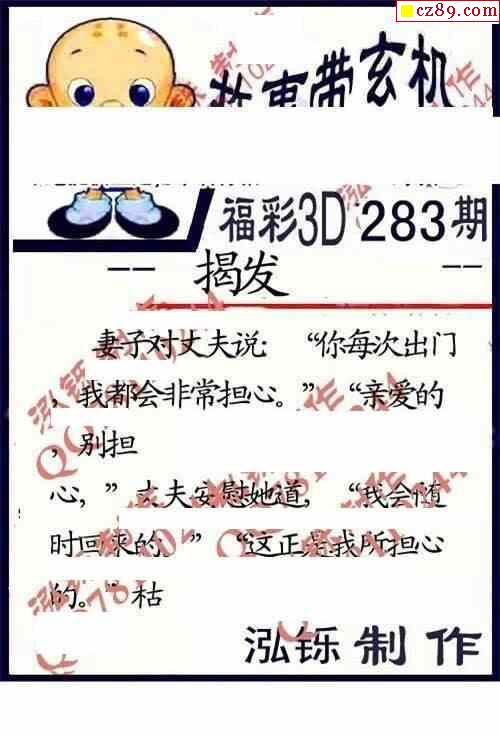 cz89.com
故事带玄机
福彩3D 283期
-- 揭发 --
妻子对丈夫说: “你每次出门
,我都会非常担心。”“亲爱的
,别担
心,”丈夫安慰她道,“我会随
时回来的。”“这正是我所担心
的。”枯
泓铄制作